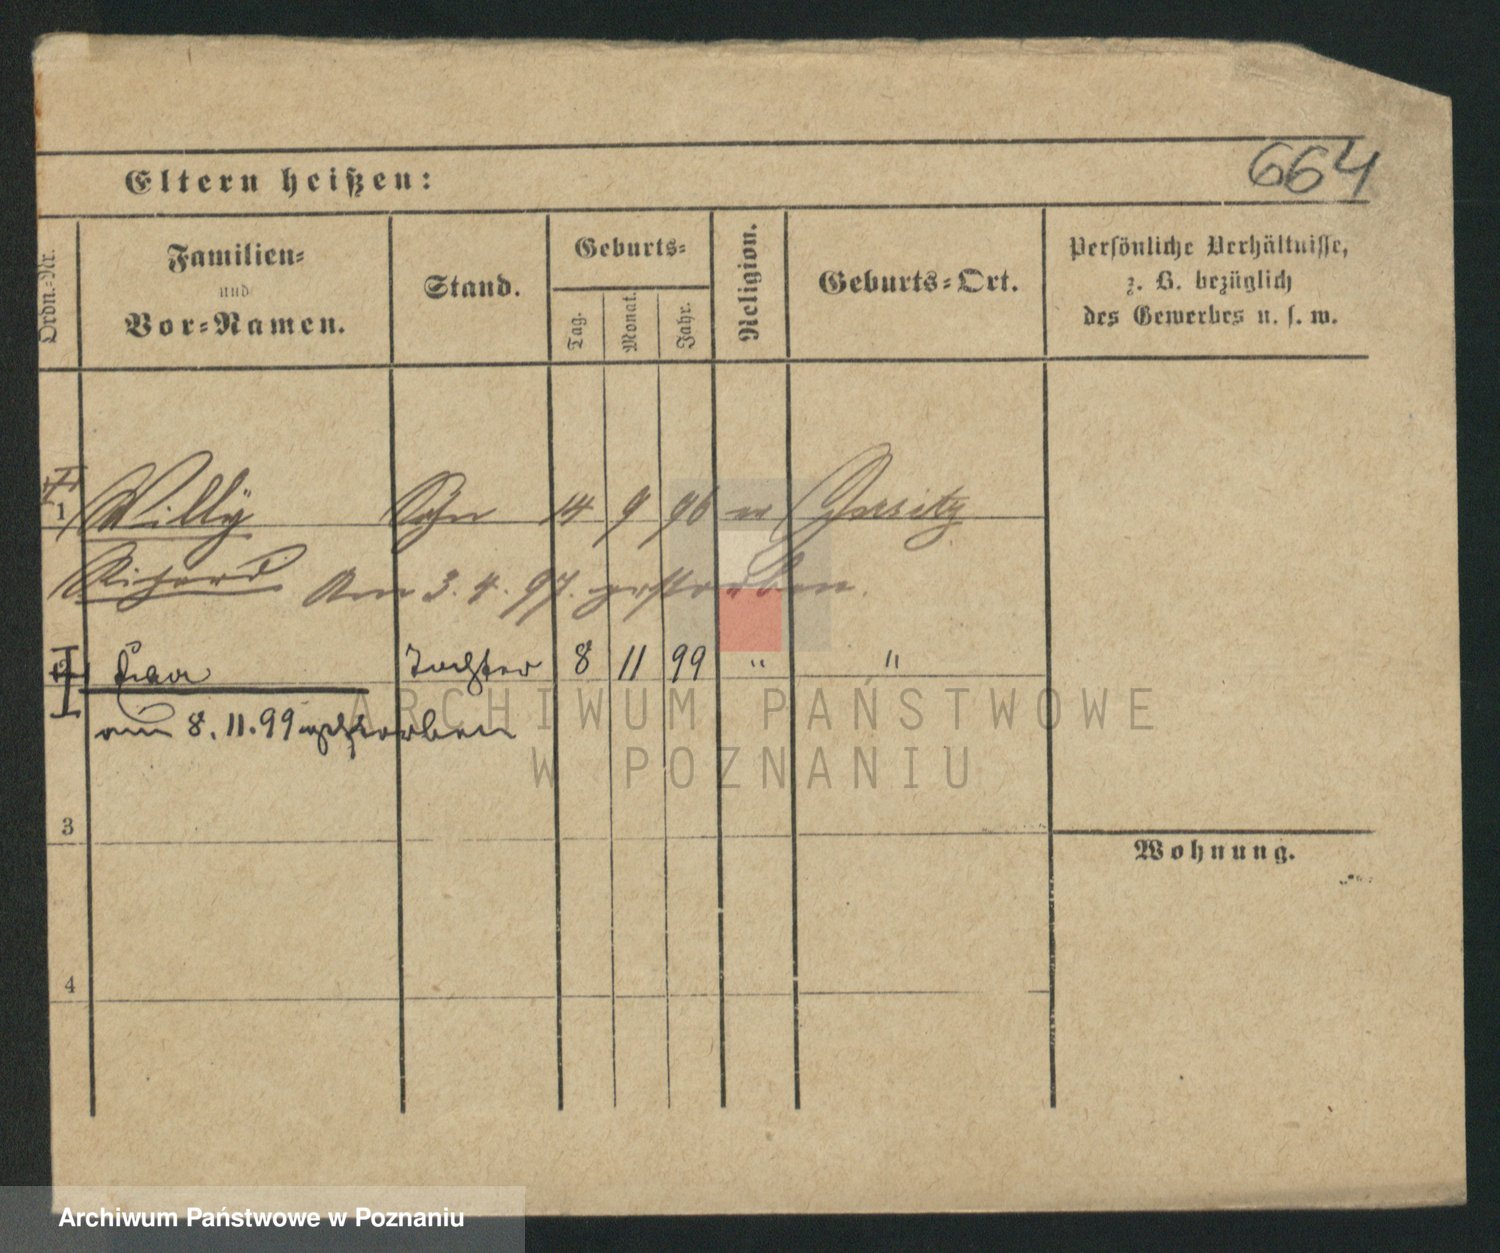 664
Eltern heißen:
Ordn.-Nr.
Familien-
und
Vor-Namen.
Stand.
Geburts-
Tag.
Monat.
Jahr.
Religion.
Geburts-Ort.
Persönliche Verhältnisse,
z. B. bezüglich
des Gewerbes u. s. w.
1 Willy Sohn 14 9 96 ev Jersitz
Richard Am 3. 4. 97. gestorben.
Tochter 8 11 99 " "
am 8. 11. 99 gestorben
ARCHIWUM PAŃSTWOWE
W POZNANIU
3
Wohnung.
4
Archiwum Państwowe w Poznaniu